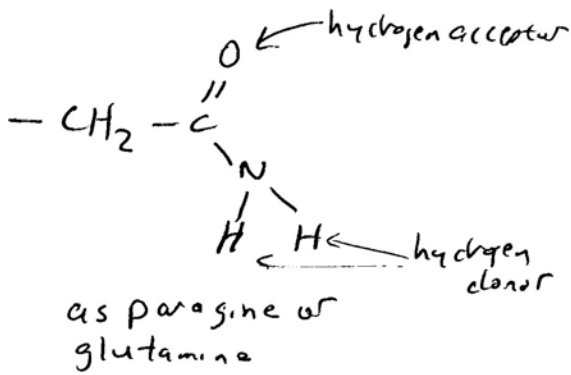 hydrogen acceptor
O
— CH2 — C
N
H H
hydrogen
donor
asparagine or
glutamine